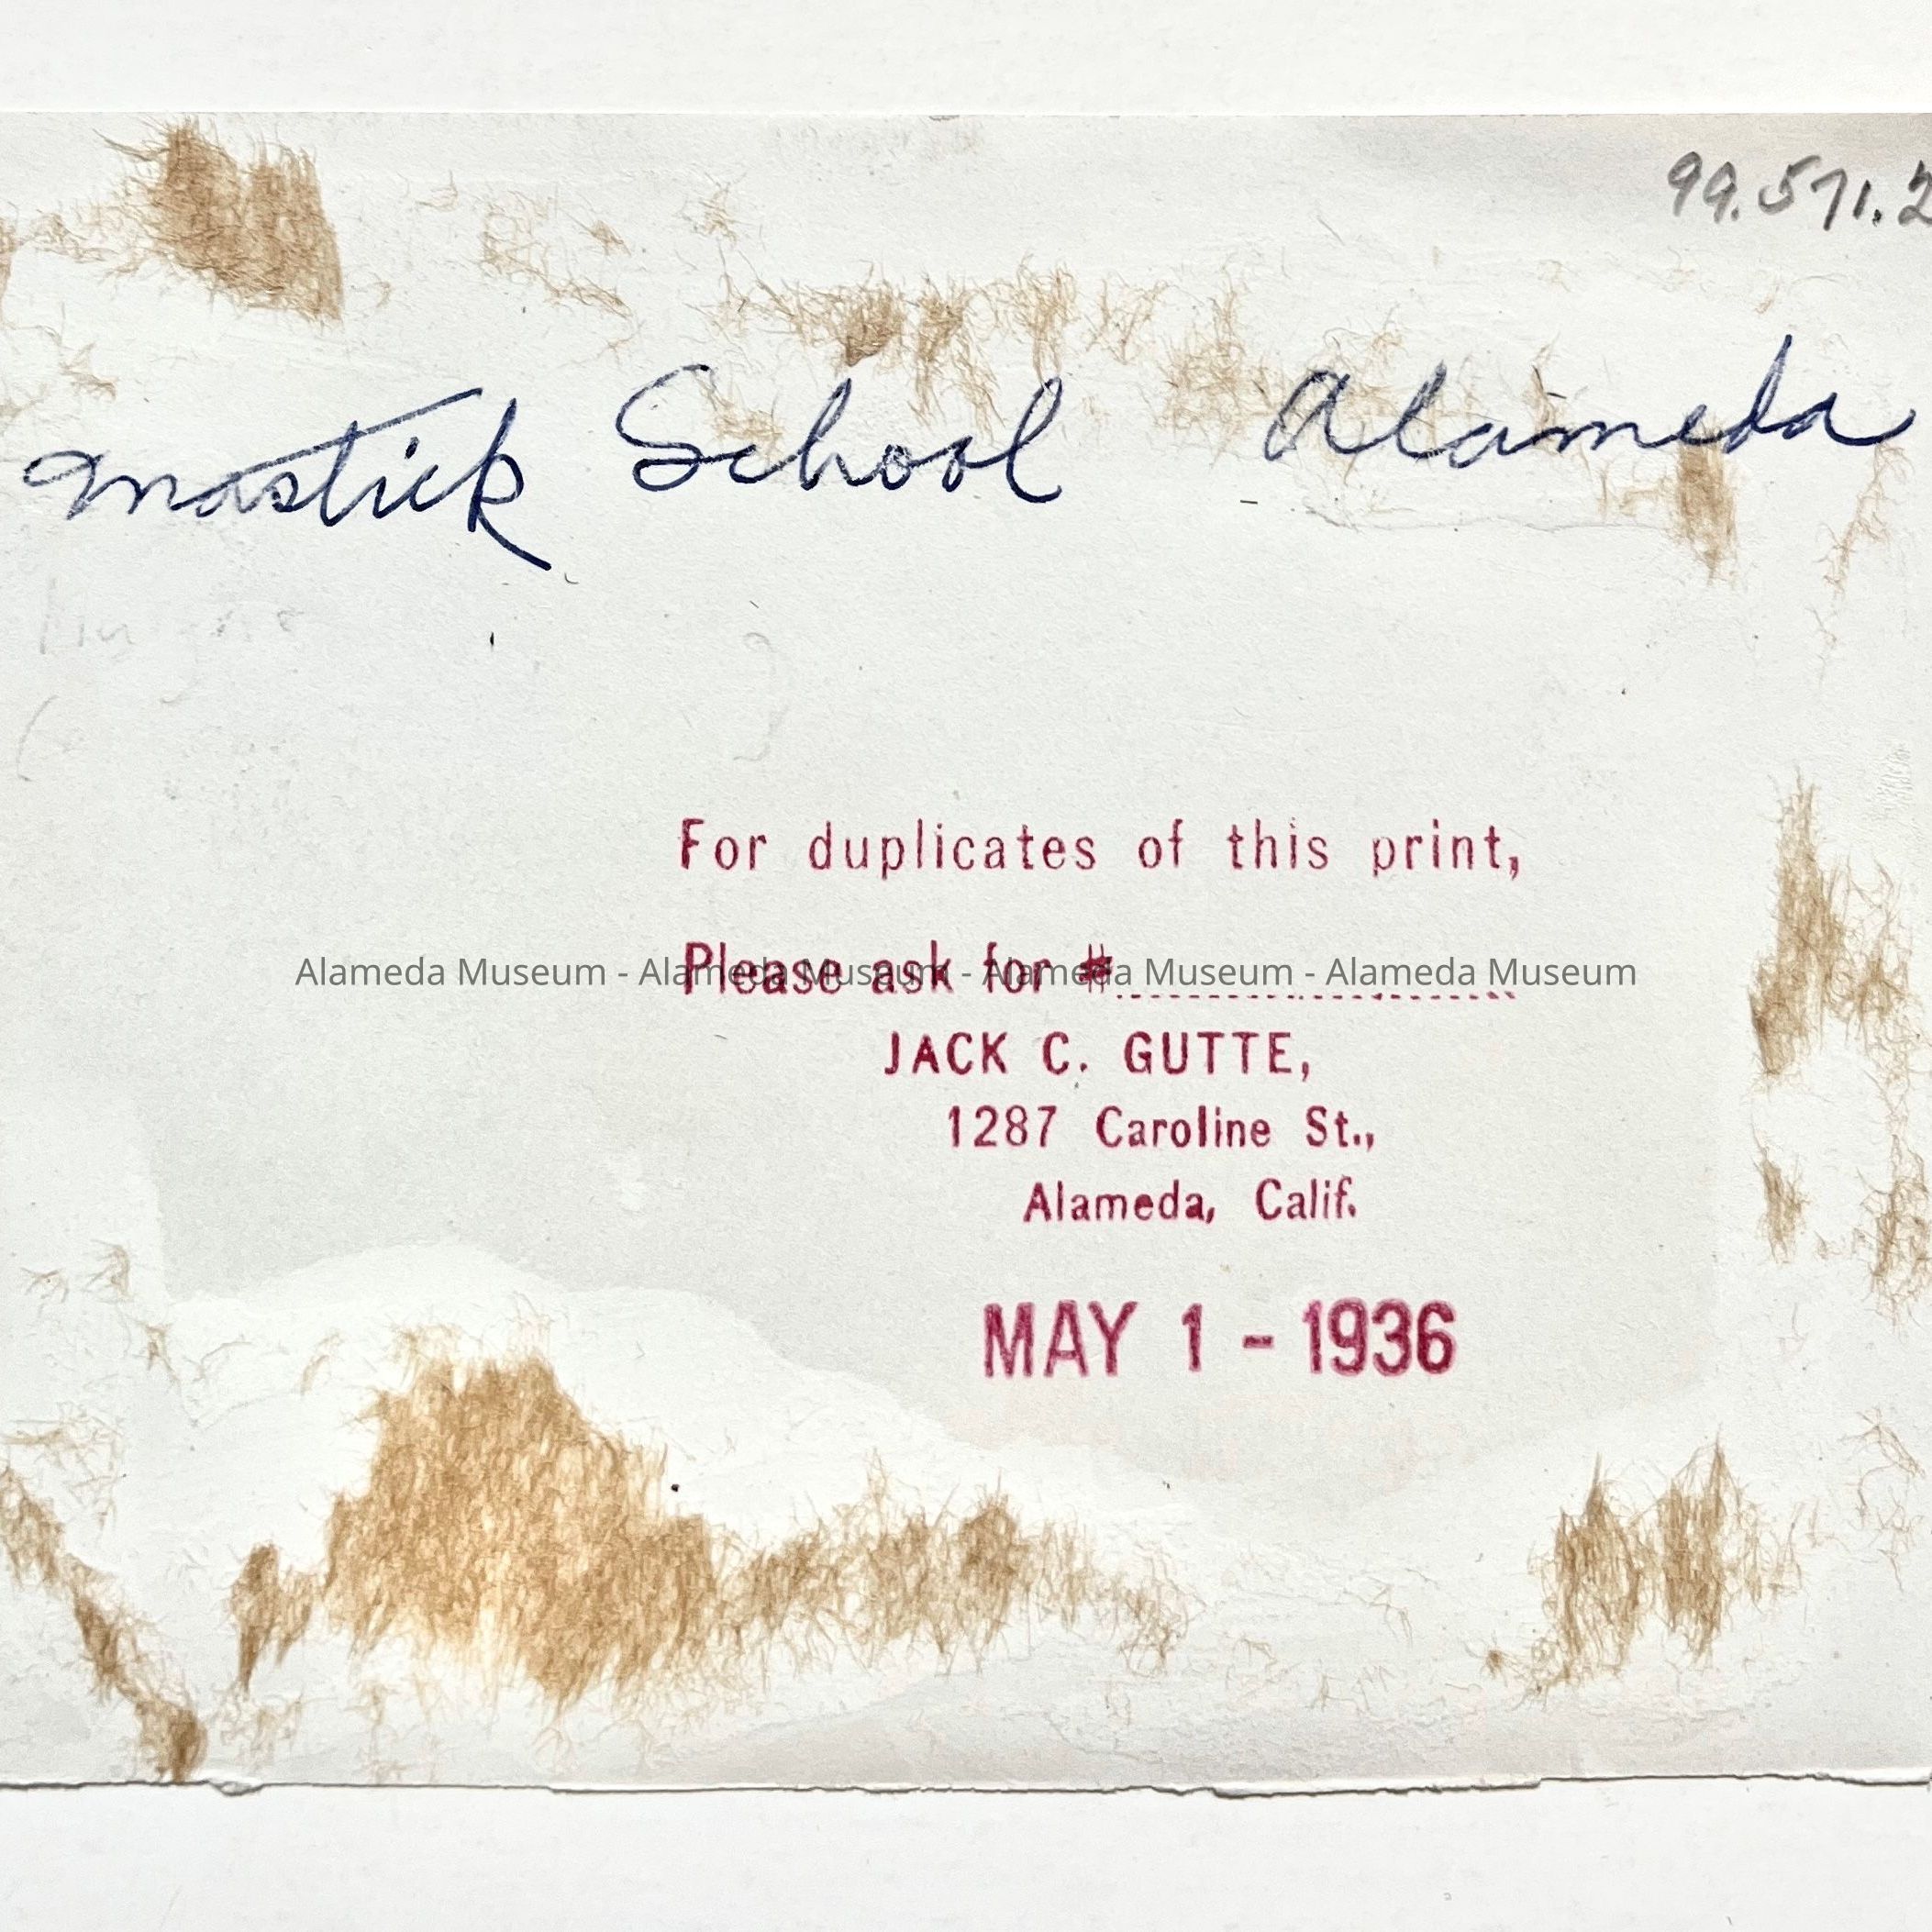 99.571.2
Mastick School Alameda
For duplicates of this print,
Please ask for #
Alameda Museum - Alameda Museum - Alameda Museum - Alameda Museum
JACK C. GUTTE,
1287 Caroline St.,
Alameda, Calif.
MAY 1 - 1936